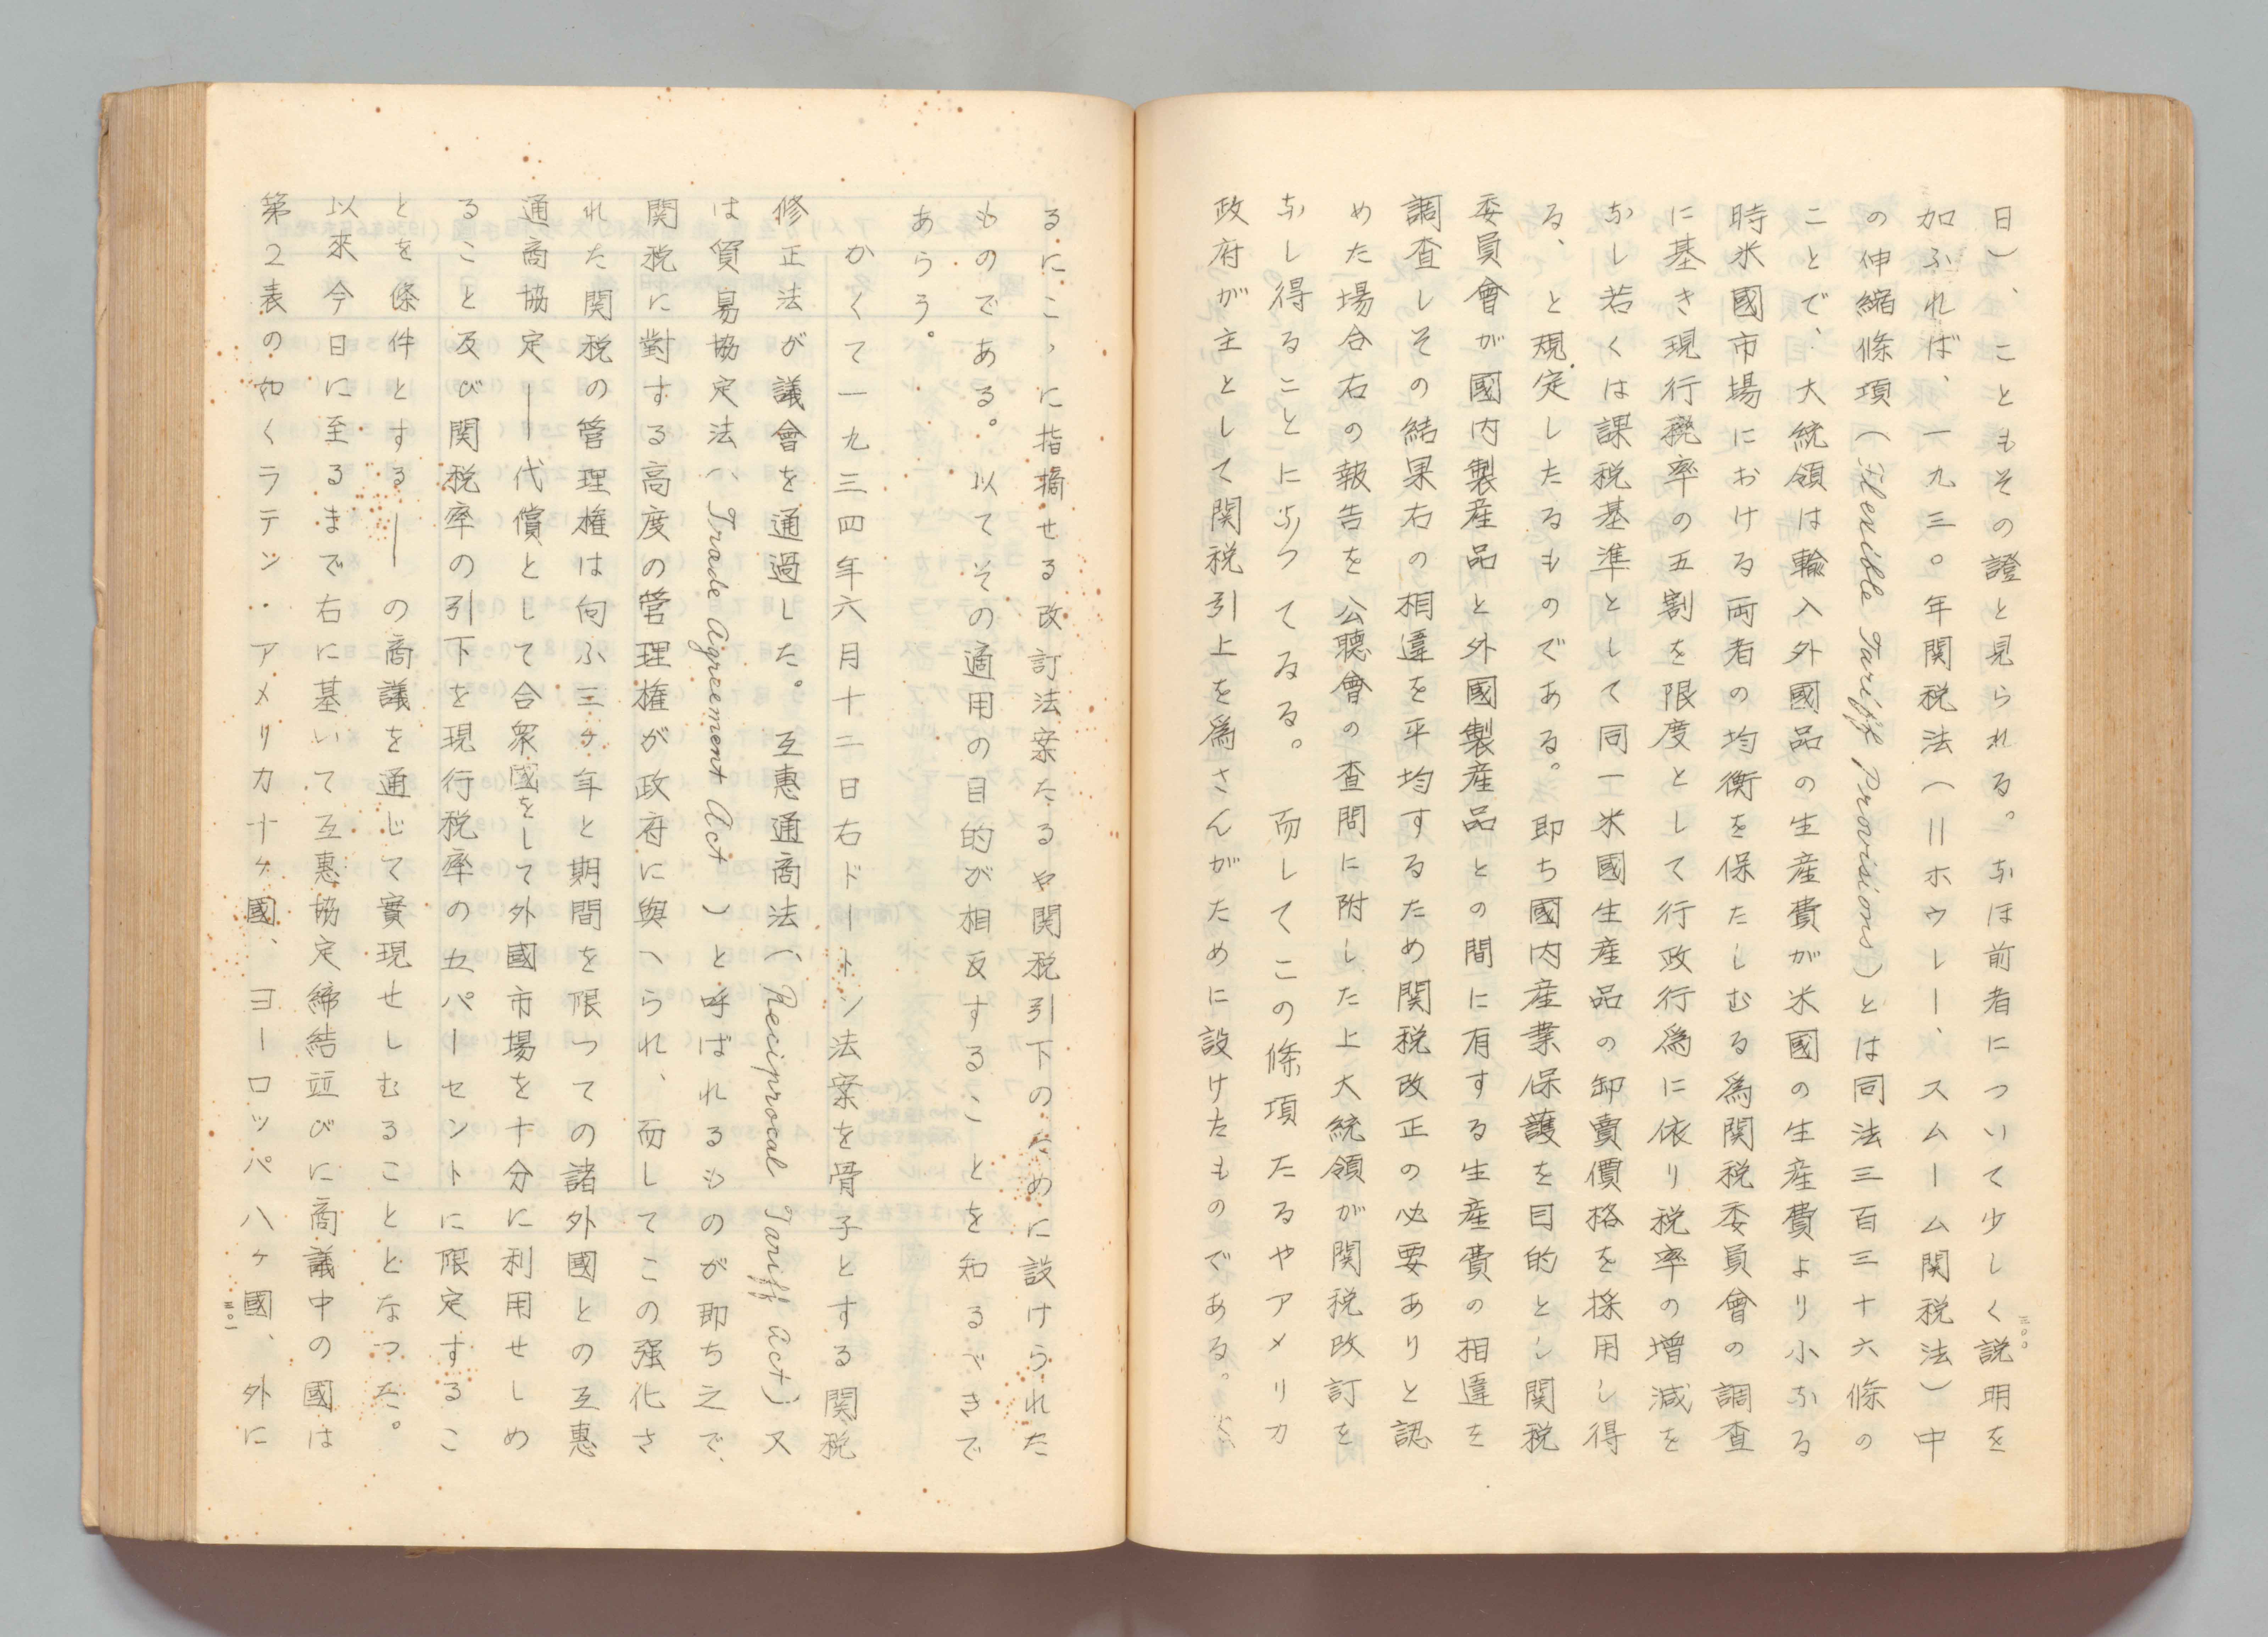 日）、こともその證と見られる。なほ前者について少しく説明を
加ふれば、一九三〇年関税法（＝ホウレー、スムーム関税法）中
の伸縮條項（Flexible Tariff Provisions）とは同法三百三十六條の
ことで、大統領は輸入外國品の生産費が米國の生産費より小なる
時米國市場における両者の均衡を保たしむる為関税委員會の調査
に基き現行税率の五割を限度として行政行為に依り税率の増減を
なし若くは課税基準として同一米國生産品の卸賣價格を採用し得
る、と規定したるものである。即ち國内産業保護を目的とし関税
委員會が國内製産品と外國製産品との間に有する生産費の相違を
調査しその結果右の相違を平均するため関税改正の必要ありと認
めた場合右の報告を公聴會の査問に附した上大統領が関税改訂を
なし得ることになつてゐる。而してこの條項たるやアメリカ
政府が主として関税引上を為さんがために設けたものである。
三〇〇
るにこゝに指摘せる改訂法案たるや関税引下のために設けられた
ものである。以てその適用の目的が相反することを知るべきで
あらう。
かくて一九三四年六月十二日右ドートン法案を骨子とする関税
修正法が議會を通過した。互惠通商法（Reciprocal Tariff Act）又
は貿易協定法（Trade Agreement Act）と呼ばれるものが即ち之で、
関税に對する高度の管理権が政府に與へられ、而してこの強化さ
れた関税の管理権は向ふ三ヶ年と期間を限つての諸外國との互惠
通商協定――代償として合衆國をして外國市場を十分に利用せしめ
ること及び関税率の引下を現行税率の五パーセントに限定するこ
とを條件とする――の商議を通じて實現せしむることとなつた。
以來今日に至るまで右に基いて互惠協定締結並びに商議中の國は
第２表の如くラテン・アメリカ十ヶ國、ヨーロッパ八ヶ國、外に
三〇一